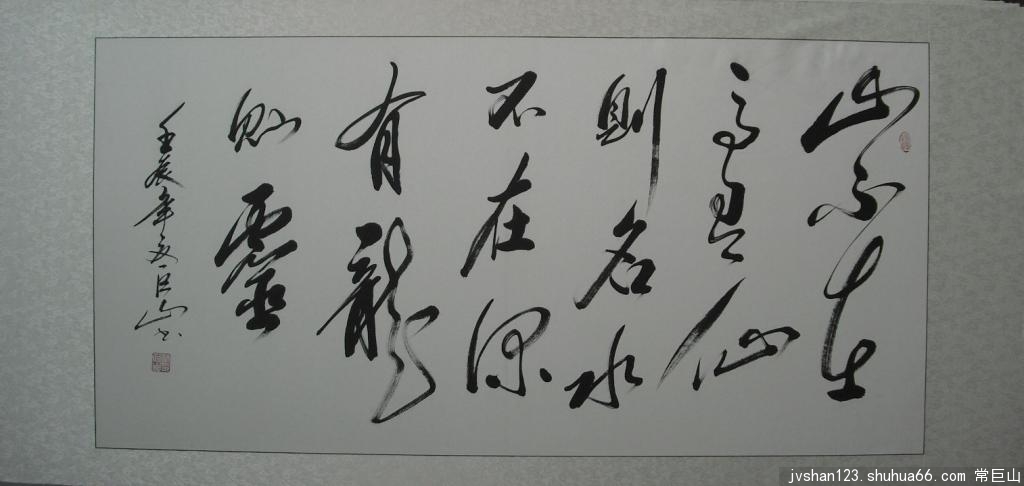 山不在
高有仙
則名水
不在深
有龍
則靈
壬辰年夏巨山书
jvshan123.shuhua66.com 常巨山